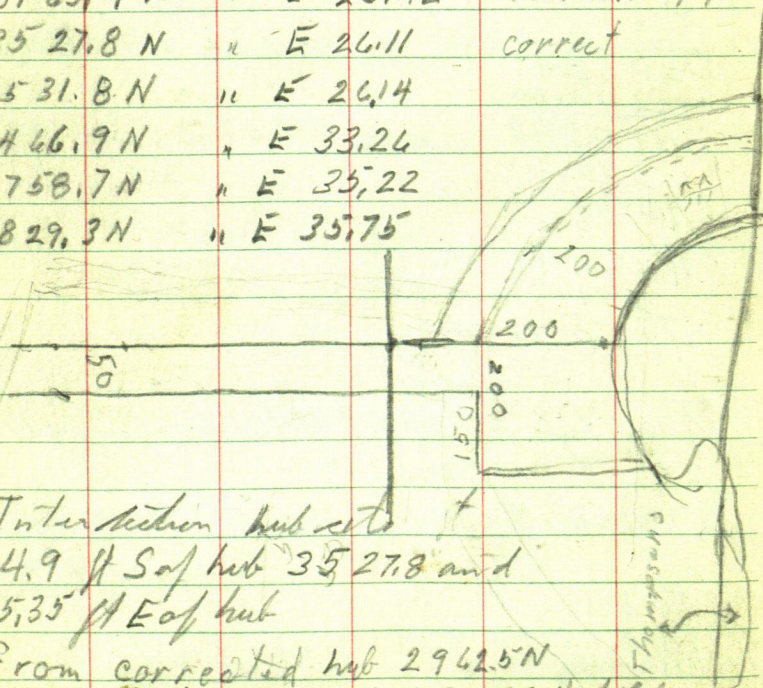 5 27.8 N " E 26.11 correct
531.8 N " E 26.14
466.9 N " E 33.26
758.7 N " E 35.22
829.3 N " E 35.75
200
200
50
200
150
Intersection hub
4.9 ft S of hub 3527.8 and
5.35 ft E of hub
From corrected hub 2962.5N